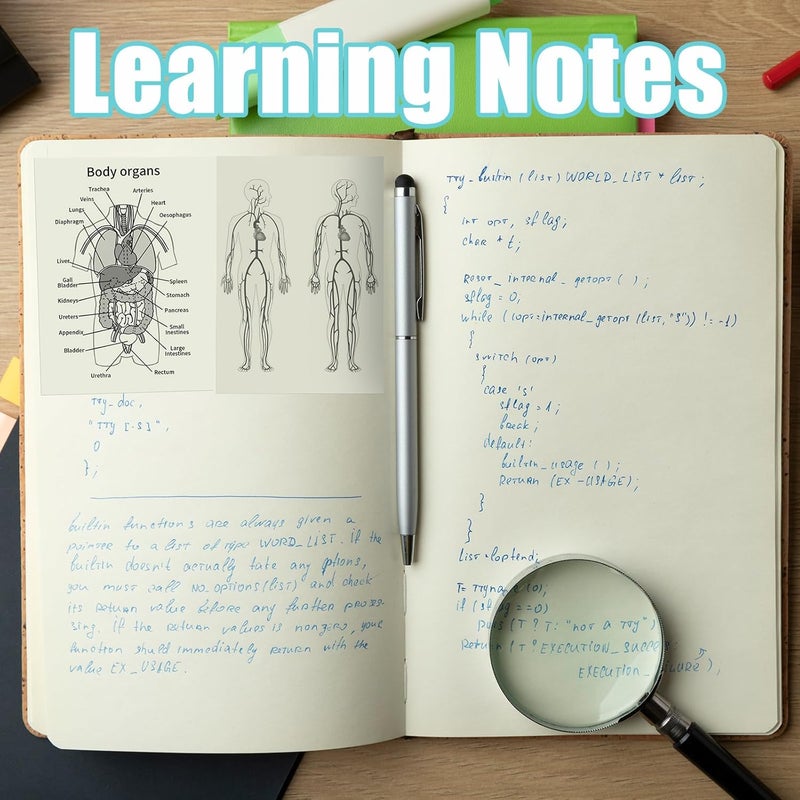 Learning Notes
Body organs
Trachea
Arteries
Veins
Heart
Lungs
Oesophagus
Diaphragm
Liver
Gall
Bladder
Spleen
Kidneys
Stomach
Ureters
Pancreas
Appendix
Small
Intestines
Bladder
Large
Intestines
Urethra
Rectum
tty_doc,
"tty [-s]",
0
};
builtin functions are always given a
pointer to a list of type WORD_LIST. if the
builtin doesn't actually take any options,
you must call no_options(list) and check
its return value before any further proces-
sing. if the return values is nonzero, your
function should immediately return with the
value EX_USAGE.
tty_builtin (list) WORLD_LIST * list;
{
int opt, sflag;
char * t;
reset_internal_getopt ( );
sflag = 0;
while ((opt=internal_getopt (list, "s")) != -1)
{
switch (opt)
{
case 's'
sflag = 1;
break;
default:
builtin_usage ( );
return (EX-USAGE);
}
}
list = loptend;
t= ttyname (0);
if (sflag ==0)
puts (t ? t: "not a tty")
return (t ? EXECUTION_SUCCESS:
EXECUTION_FAILURE);